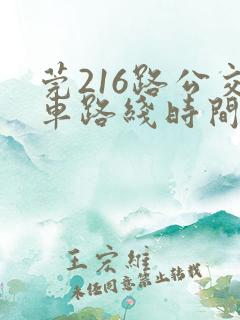 莞216路公交
車路綫時間
王宏維
未经同意禁止转载